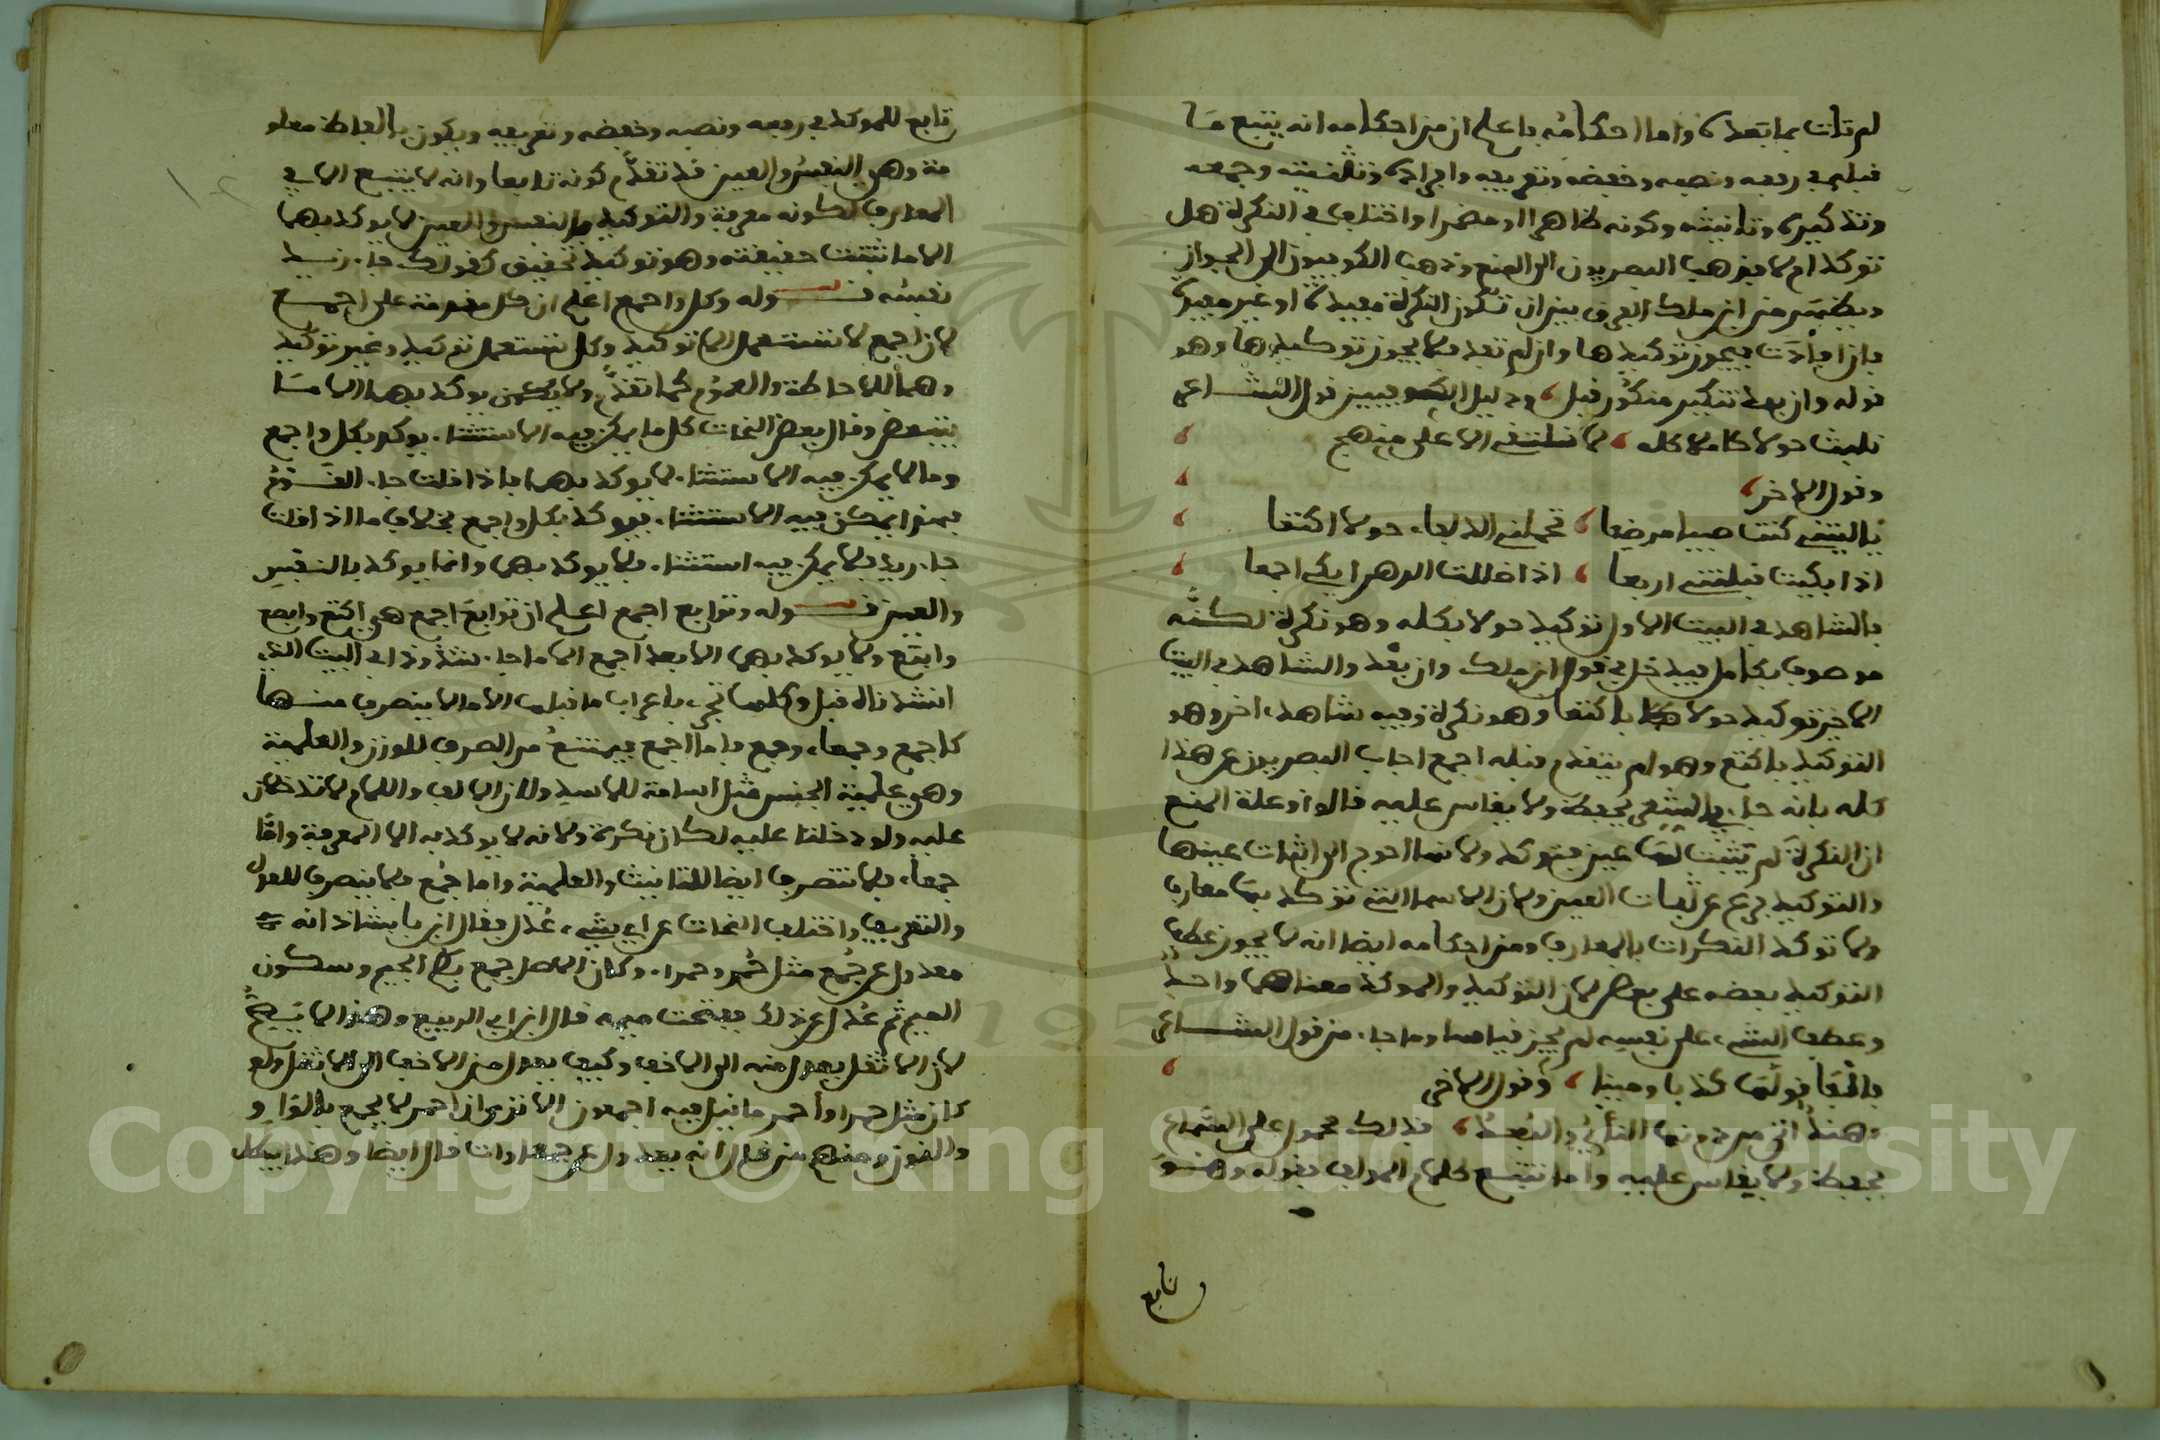 لم تات بما بعده واما احكامه باعلم ان من احكامه انه يتبع ما
قبله في رفعه ونصبه وخفضه وتعريفه وافراده وتثنيته وجمعه
وتذكيره وتانيثه وكونه ظاهرا او مضمرا واختلف في النكرة هل
توكد ام لا فذهب البصريون الى المنع وذهب الكوفيون الى الجواز
ابن ملك الفرق بين ان تكون النكرة مفيدة او غير مفيدة
فان افادت فيجوز توكيدها وان لم تفد فلا يجوز توكيدها وهو
قوله وان يفد توكيد منكور قبل ودليل الكوفيين قول الشاعر
ثلبث حولا كاملا كله لا نلتقي الا على منهج
وقول الاخر
يا ليتني كنت صبيا مرضعا تحملني الذلفاء حولا اكتعا
اذا بكيت قبلتني اربعا اذا ظللت الدهر ابكي اجمعا
فالشاهد في البيت الاول توكيد حولا بكله وهو نكرة لكنه
موصوف بكامل فيدخل في قول ابن ملك وان يفد والشاهد في البيت
الاخير توكيد حولا باكتعا وهو نكرة وفيه شاهد اخر وهو
التوكيد باكتع وهو لم يتقدم قبله اجمع اجاب البصريون عن هذا
كله بانه جاء في الشعر يحفظ ولا يقاس عليه قالوا وعلة المنع
ان النكرة لم تثبت لها عين فتوكد ولانها احوج الى اثبات عينها
والتوكيد فرع عن ثبات العين ولان الاسما التي توكد بها معارف
ولا توكد النكرات بالمعارف ومن احكامه ايضا انه لا يجوز عطف
التوكيد بعضه على بعض لان التوكيد والموكد معناهما واحد
وعطف الشيء على نفسه لم يجز قياسا وما جاء من قول الشاعر
بالفا قولها كذبا ومينا وقول الاخر
وهند اتى من دونها الناي والبعد فذلك محمول على السماع
يحفظ ولا يقاس عليه واما نتبع كلام المولف بقوله وهو
تابع
تابع للموكد في رفعه ونصبه وخفضه وتعريفه ويكون بالفاظ معلو
مة وهي النفس والعين قد تقدم كونه تابعا وانه لا يتبع الا في
المعارف لكونه معرفة والتوكيد بالنفس والعين لا يوكد بهما
الا ما ثبتت حقيقته وهو توكيد تحقيق كقولك جاء زيد
نفسه قوله وكل واجمع اعلم ان كل مقدمة على اجمع
لان اجمع لا تستعمل الا توكيد وكل تستعمل توكيد وغير توكيد
وهما للاحاطة والعموم كما تقدم ولا يوكد بهما الا ما
يتبعض وقال بعض النحات كل ما يمكن فيه الاستثنا يوكد بكل واجمع
وما لا يمكن فيه الاستثنا لا يوكد بهما فاذا قلت جاء القوم
فهنا يمكن فيه الاستثنا فيوكد بكل واجمع بخلاف ما اذا قلت
جاء زيد فلا يمكن فيه استثنا فلا يوكد بهما وانما يوكد بالنفس
والعين قوله وتوابع اجمع اعلم ان توابع اجمع هي اكتع وابصع
وابتع ولا يوكد بهما الا بعد اجمع الا ما جاء شذوذا في البيت الذي
انشدناه قبل وكلها تجري باعراب ما قبلها الا ما لا ينصرف منها
كاجمع وجمعاء وجمع فاما اجمع فيمتنع من الصرف للوزن والعلمية
وهي علمية الجنس مثل اسامة للاسد ولان الالف واللام لا تدخلان
عليه ولو دخلتا عليه لكان نكرة ولانه لا يوكد به الا المعرفة واما
جمعاء فلا تنصرف ايضا للتانيث والعلمية واما جمع فلا ينصرف للعدل
والتعريف واختلف النحات عن اي شيء عدل فقال ابن بابشاذ انه
معدول عن جمع مثل حمر وحمراء وكان الاصل جمع بضم الجيم وسكون
الميم ثم عدل عن ذلك ففتحت ميمه قال ابن ابي الربيع وهذا لا يصح
لان الاثقل يعدل منه الى الاخف وكيف يعدل من الاخف الى الاثقل ولو
كان مثل حمرا واحمر ما قيل فيه اجمعون الا ترى ان احمر لا يجمع بالواو
والنون ومنهم من قال انه يعدل عن جمعاوات قال ايضا وهذا